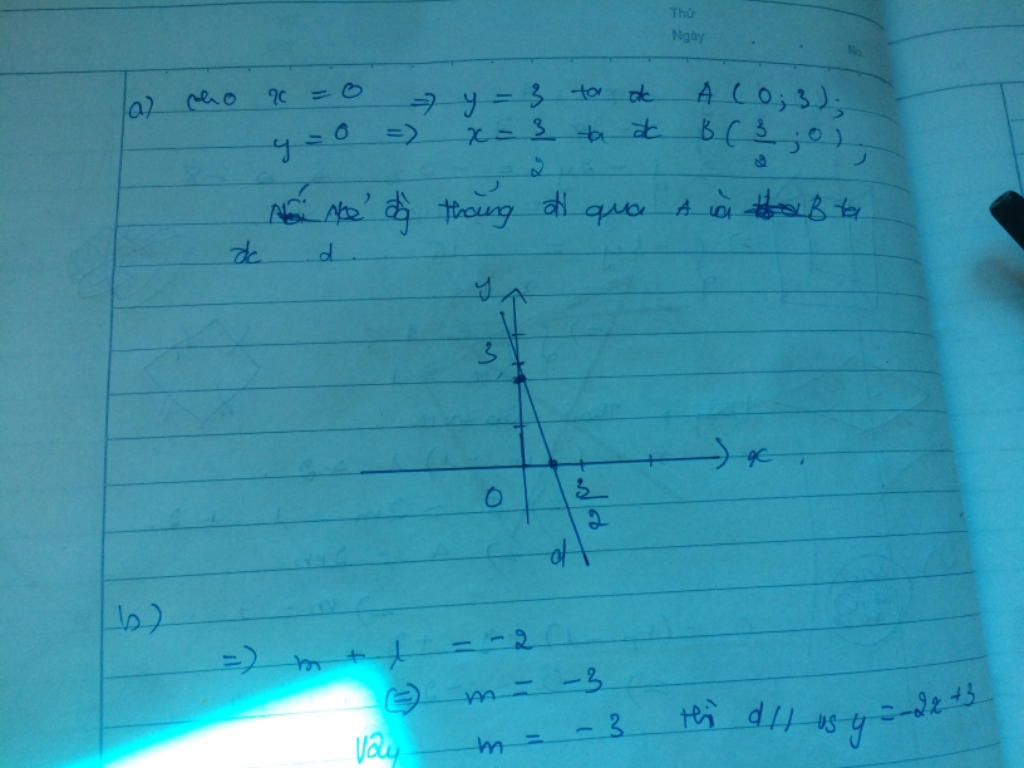 Thứ
Ngày
No.
a) cho x = 0 => y = 3 ta đc A ( 0 ; 3 ) ;
y = 0 => x = 3/2 ta đc B ( 3/2 ; 0 ) ;
Kẻ đg thẳng đi qua A và B ta
đc d .
y
3
x .
0
3/2
d
b)
=> m + 1 = -2
<=> m = -3
Vậy m = -3 thì d // vs y = -2x + 3